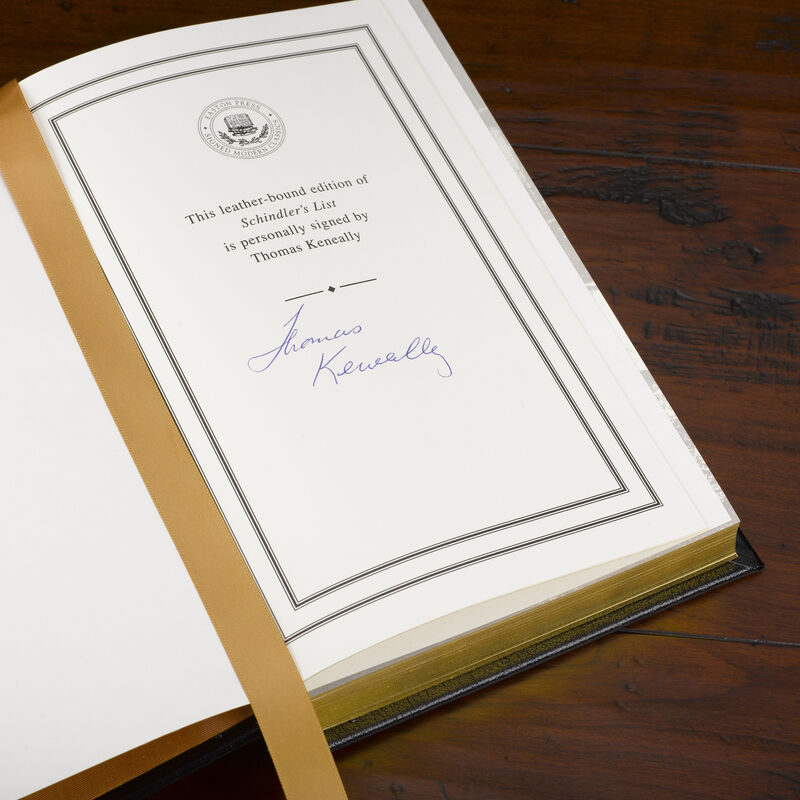 EASTON PRESS
SIGNED MODERN CLASSICS
This leather-bound edition of
Schindler's List
is personally signed by
Thomas Keneally
Thomas
Keneally